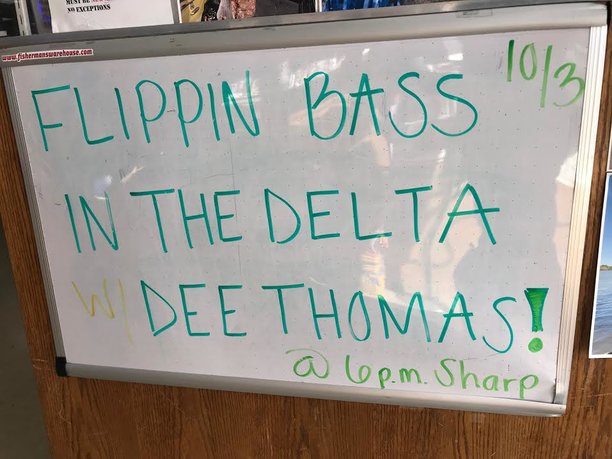 MUST BE
NO EXCEPTIONS
www.fishermanswarehouse.com
10/3
FLIPPIN BASS
IN THE DELTA
W/ DEE THOMAS!
@ 6p.m. Sharp